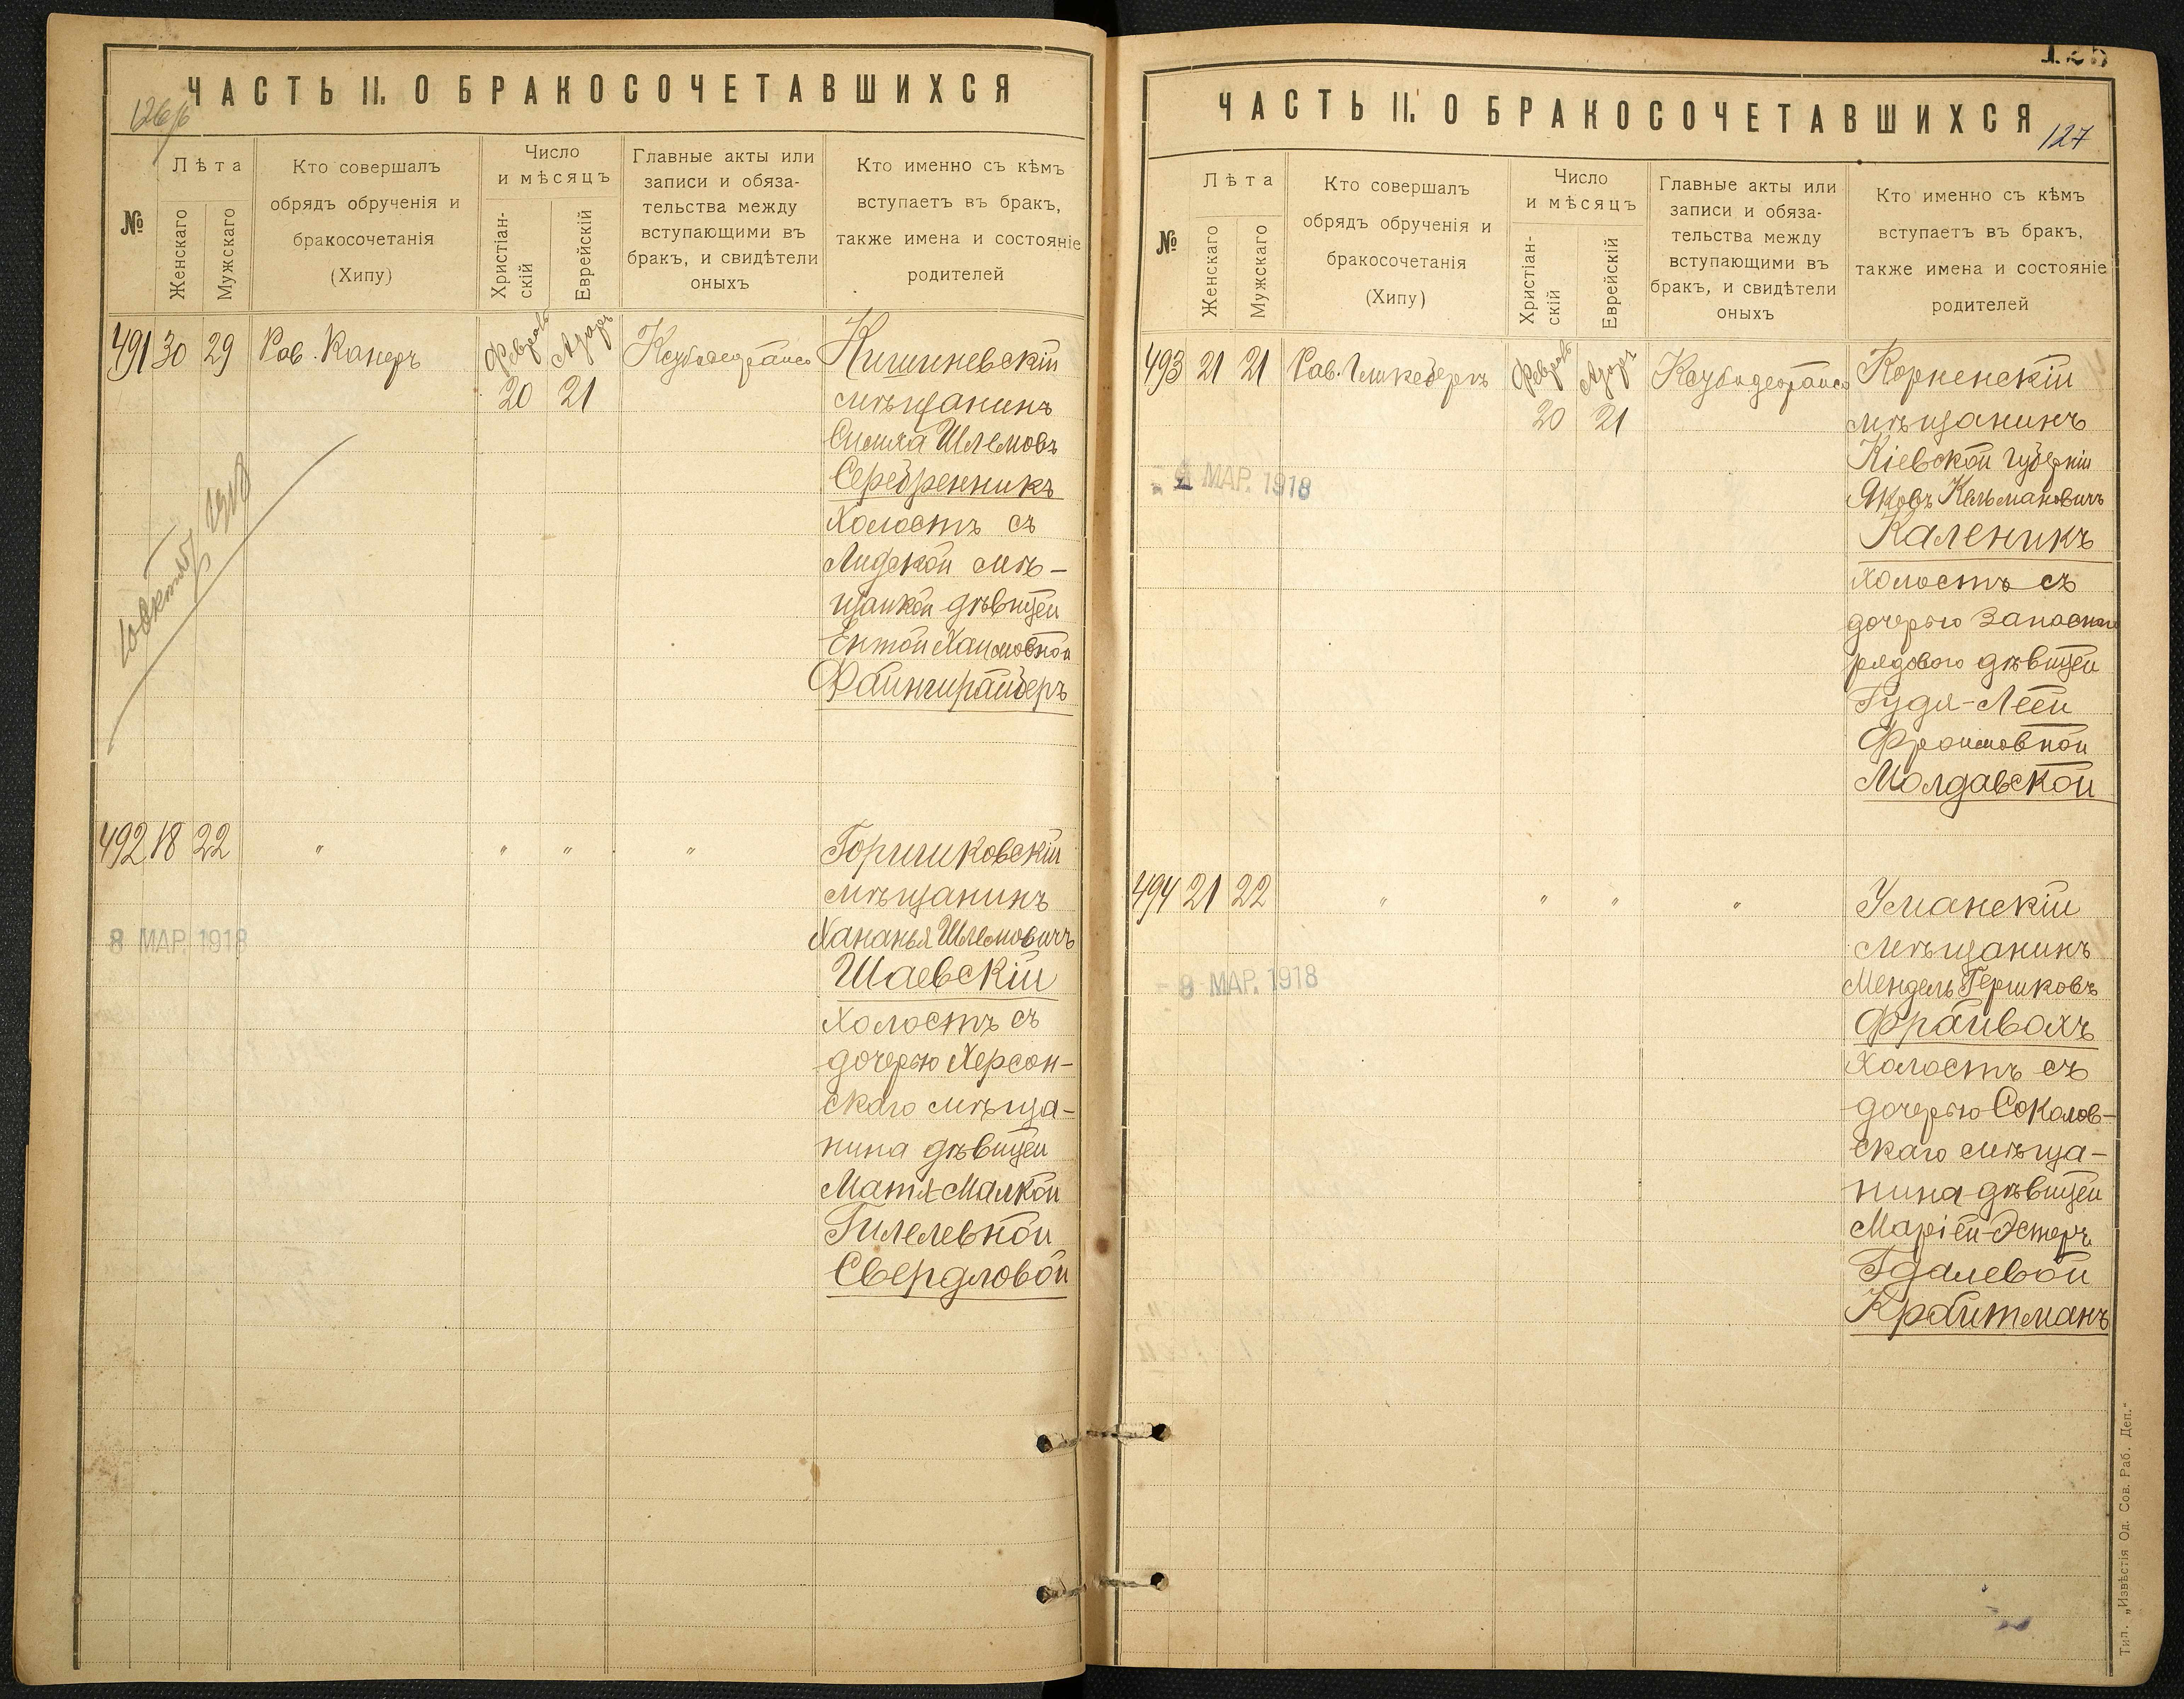 ЧАСТЬ II. О БРАКОСОЧЕТАВШИХСЯ
№
Лѣта
Женскаго
Мужскаго
Кто совершалъ
обрядъ обрученія и
бракосочетанія
(Хипу)
Число
и мѣсяцъ
Христіан-
скій
Еврейскій
Главные акты или
записи и обяза-
тельства между
вступающими въ
бракъ, и свидѣтели
оныхъ
Кто именно съ кѣмъ
вступаетъ въ бракъ,
также имена и состояніе
родителей
491 30 29 Рав. Канеръ
Февраль 20
Адаръ 21
Кишиневскій
мѣщанинъ
Симха Шлемовъ
Серебренникъ
холостъ съ
Лидской мѣ-
щанкой дѣвицей
Ентой Хаимовной
492 18 22 " " " "
Горшковскій
мѣщанинъ
Хананья Шлемовичъ
Шаевскій
холостъ съ
дочерью Херсон-
скаго мѣща-
нина дѣвицей
Матя-Малкой
Гилелевной
Свердловой
8 МАР. 1918
ЧАСТЬ II. О БРАКОСОЧЕТАВШИХСЯ
127
№
Лѣта
Женскаго
Мужскаго
Кто совершалъ
обрядъ обрученія и
бракосочетанія
(Хипу)
Число
и мѣсяцъ
Христіан-
скій
Еврейскій
Главные акты или
записи и обяза-
тельства между
вступающими въ
бракъ, и свидѣтели
оныхъ
Кто именно съ кѣмъ
вступаетъ въ бракъ,
также имена и состояніе
родителей
493 21 21 Рав.
Февраль 20
Адаръ 21
Корненскій
мѣщанинъ
Кіевской губерніи
Яковъ Кельмановичъ
Каленикъ
холостъ съ
дочерью запаснаго
рядового дѣвицей
Гудя-Леей
Фроимовной
Молдавской
МАР. 1918
494 21 22 " " " "
Уманскій
мѣщанинъ
Мендель Гершковъ
Фрайвахъ
холостъ съ
дочерью Соколов-
скаго мѣща-
нина дѣвицей
Маріей-Эстеръ
Гдалевой
Кройтманъ
- 8 МАР. 1918
Тип. „Извѣстія Од. Сов. Раб. Деп."